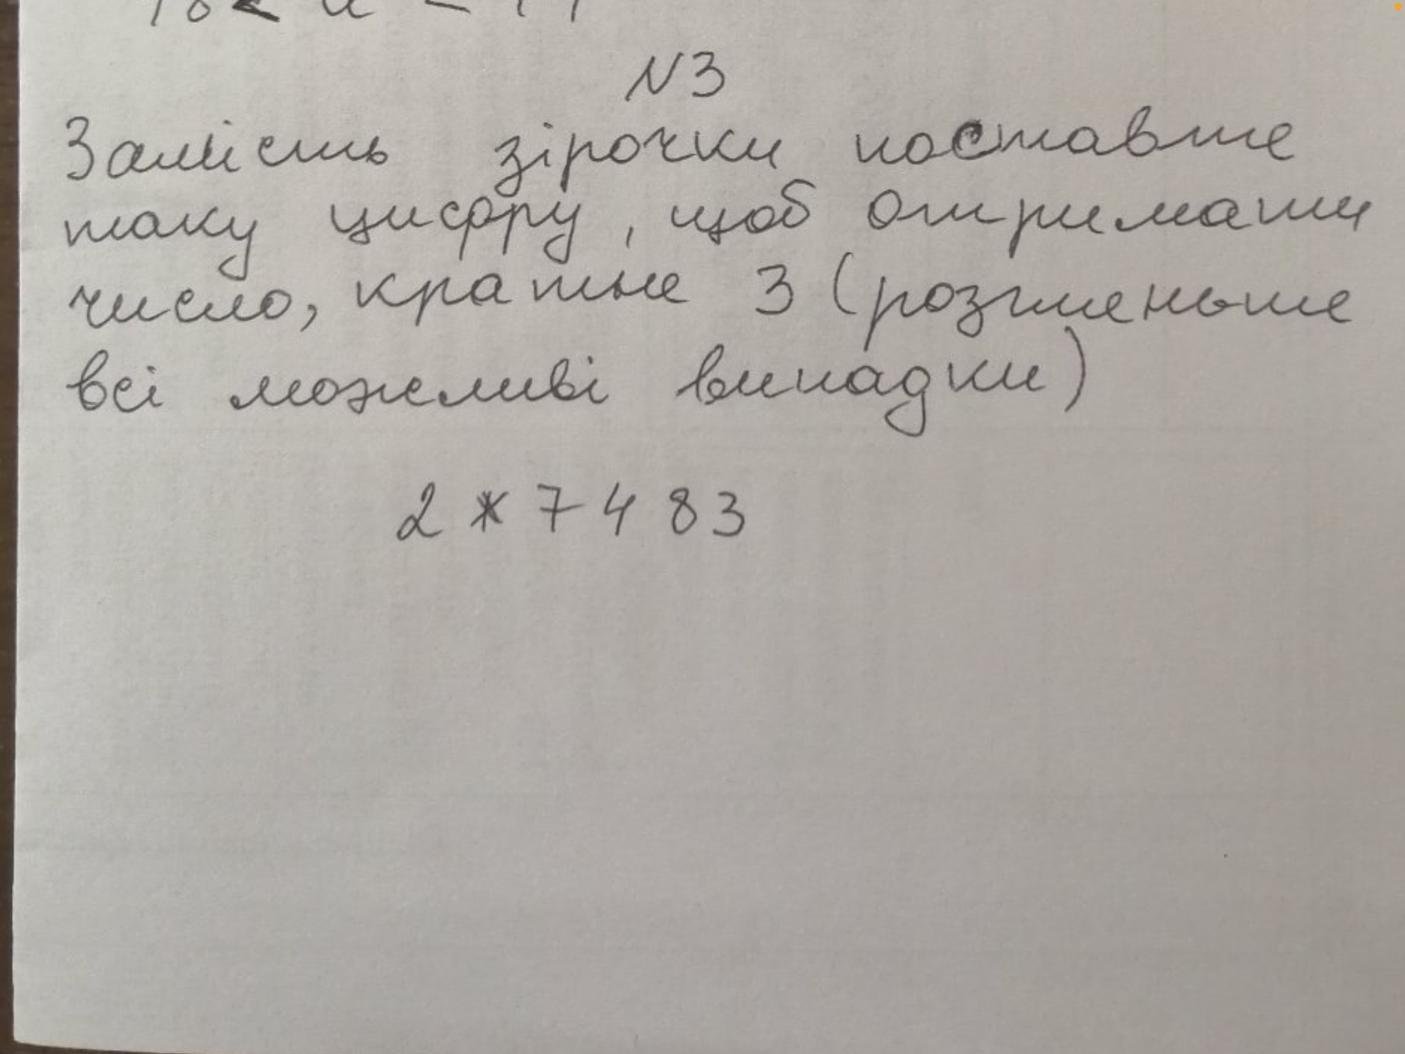 N3
Замість зірочки поставте
таку цифру, щоб отримати
число, кратне 3 (розгленьте
всі можливі випадки)
2 * 7 4 8 3